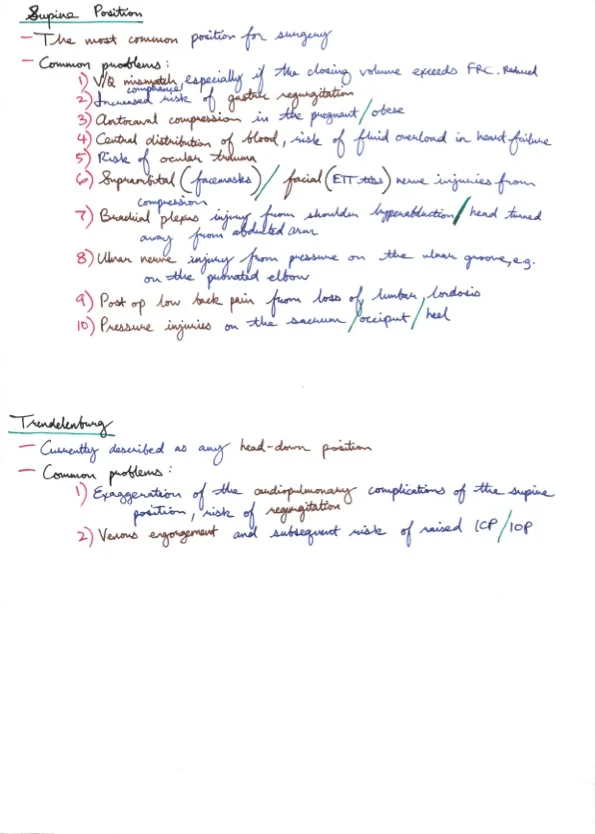 Supine Position
- The most common position for surgery
- Common problems:
1) V/Q mismatch, especially if the closing volume exceeds FRC. Reduced
compliance
2) Increased risk of gastric regurgitation
3) Aortocaval compression in the pregnant/obese
4) Central distribution of blood, risk of fluid overload in heart failure
5) Risk of ocular trauma
6) Supraorbital (facemasks)/facial (ETT ties) nerve injuries from
compression
7) Brachial plexus injury from shoulder hyperabduction/head turned
away from abducted arm
8) Ulnar nerve injury from pressure on the ulnar groove, e.g.
on the pronated elbow
9) Post op low back pain from loss of lumbar lordosis
10) Pressure injuries on the sacrum/occiput/heel
Trendelenburg
- Currently described as any head-down position
- Common problems:
1) Exaggeration of the cardiopulmonary complications of the supine
position, risk of regurgitation
2) Venous engorgement and subsequent risk of raised ICP/IOP